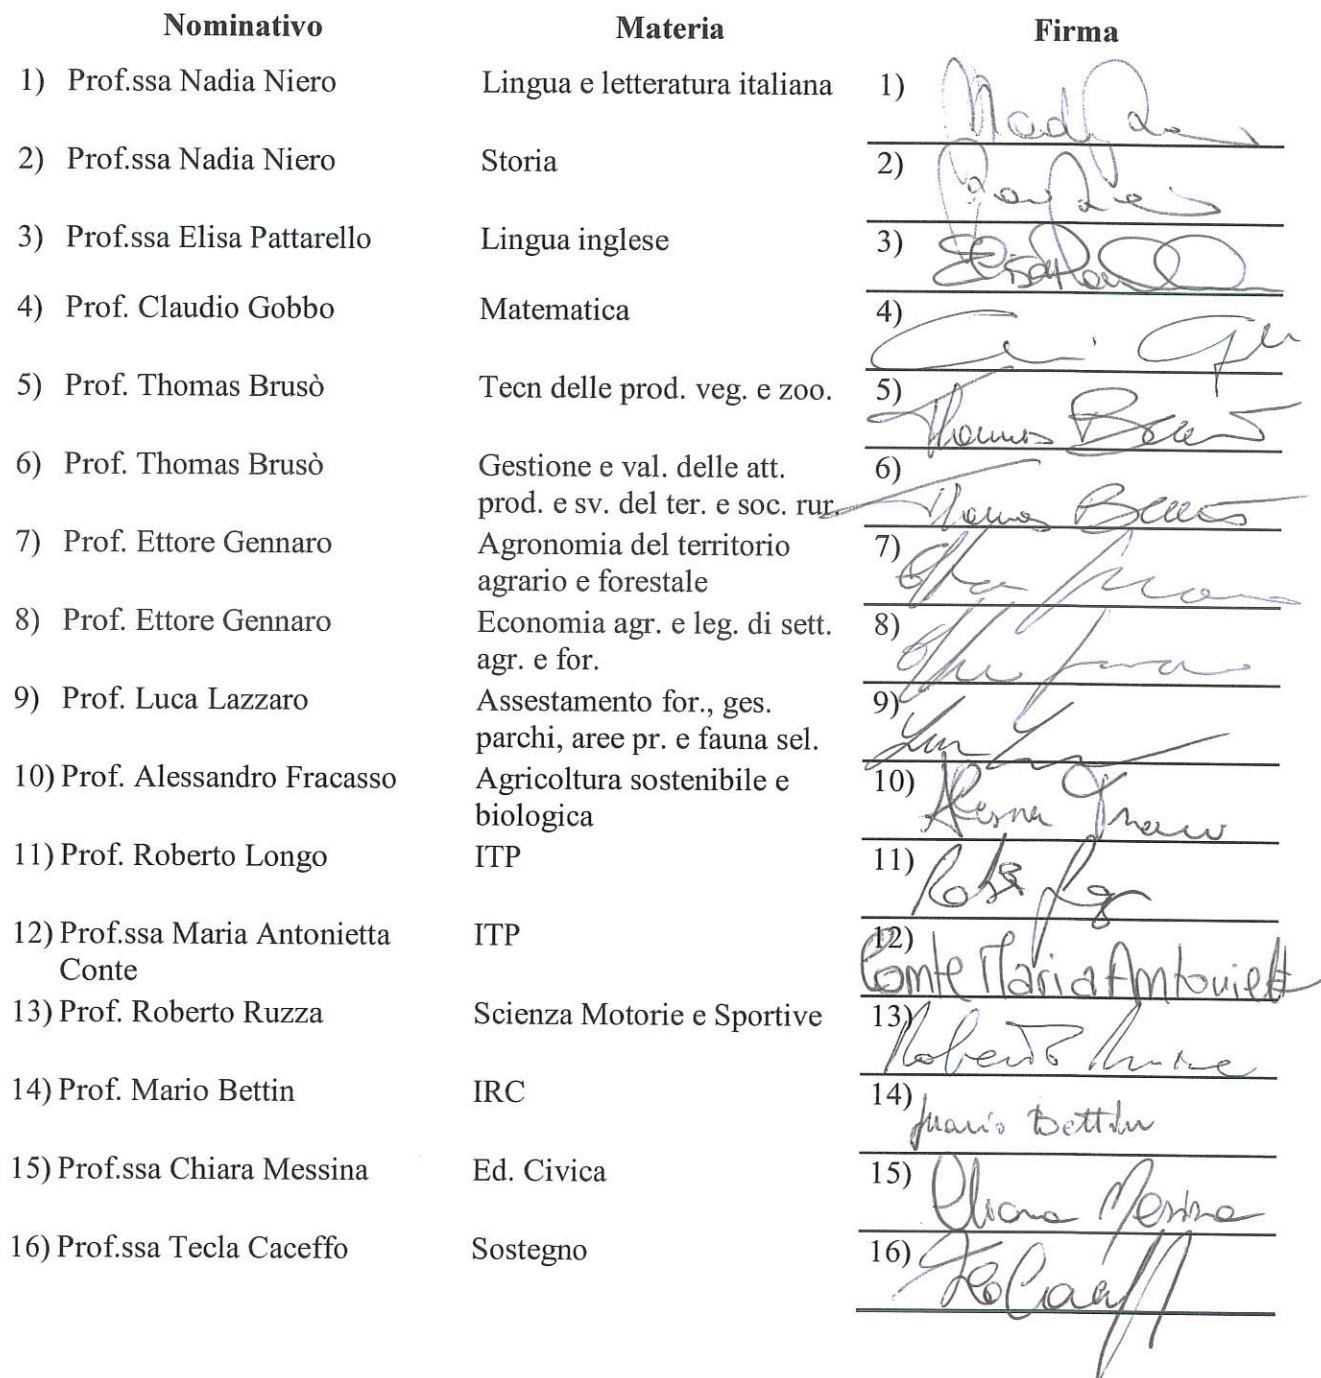 Nominativo Materia Firma
1) Prof.ssa Nadia Niero Lingua e letteratura italiana 1)
2) Prof.ssa Nadia Niero Storia 2)
3) Prof.ssa Elisa Pattarello Lingua inglese 3)
4) Prof. Claudio Gobbo Matematica 4)
5) Prof. Thomas Brusò Tecn delle prod. veg. e zoo. 5) Thomas
6) Prof. Thomas Brusò Gestione e val. delle att. 6) Thomas
prod. e sv. del ter. e soc. rur.
7) Prof. Ettore Gennaro Agronomia del territorio 7)
agrario e forestale
8) Prof. Ettore Gennaro Economia agr. e leg. di sett. 8)
agr. e for.
9) Prof. Luca Lazzaro Assestamento for., ges. 9)
parchi, aree pr. e fauna sel.
10) Prof. Alessandro Fracasso Agricoltura sostenibile e 10)
biologica
11) Prof. Roberto Longo ITP 11)
12) Prof.ssa Maria Antonietta ITP 12) Conte Maria Antonietta
Conte
13) Prof. Roberto Ruzza Scienza Motorie e Sportive 13) Roberto
14) Prof. Mario Bettin IRC 14) Mario Bettin
15) Prof.ssa Chiara Messina Ed. Civica 15) Chiara Messina
16) Prof.ssa Tecla Caceffo Sostegno 16)